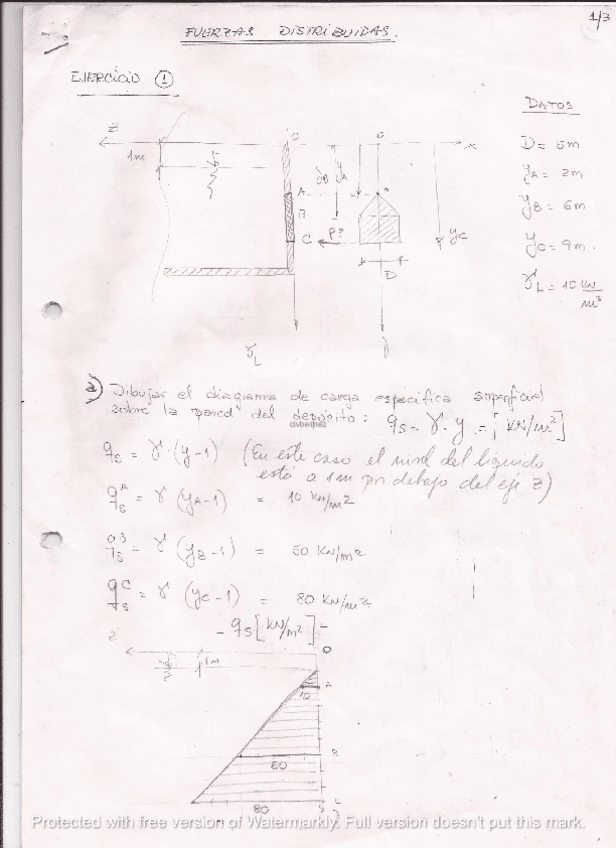 1/3
FUERZAS DISTRIBUIDAS.
EJERCICIO ①
DATOS
D = 5m
yA = 2m
yB = 6m
yC = 9m.
γL = 10 KN/m³
Z
1m
O
O
x
yB
yA
A
B
C
P?
D
yC
γL
a) Dibujar el diagrama de carga específica superficial
sobre la pared del depósito: qs = γ · y = [KN/m²]
qs = γ · (y-1) (En este caso el nivel del líquido
está a 1m por debajo del eje Z)
qsA = γ (yA-1) = 10 KN/m²
qsB = γ (yB-1) = 50 KN/m²
qsC = γ (yC-1) = 80 KN/m²
- qs [KN/m²]
Z
1m
O
A
10
B
50
80
Protected with free version of Watermarkly. Full version doesn't put this mark.